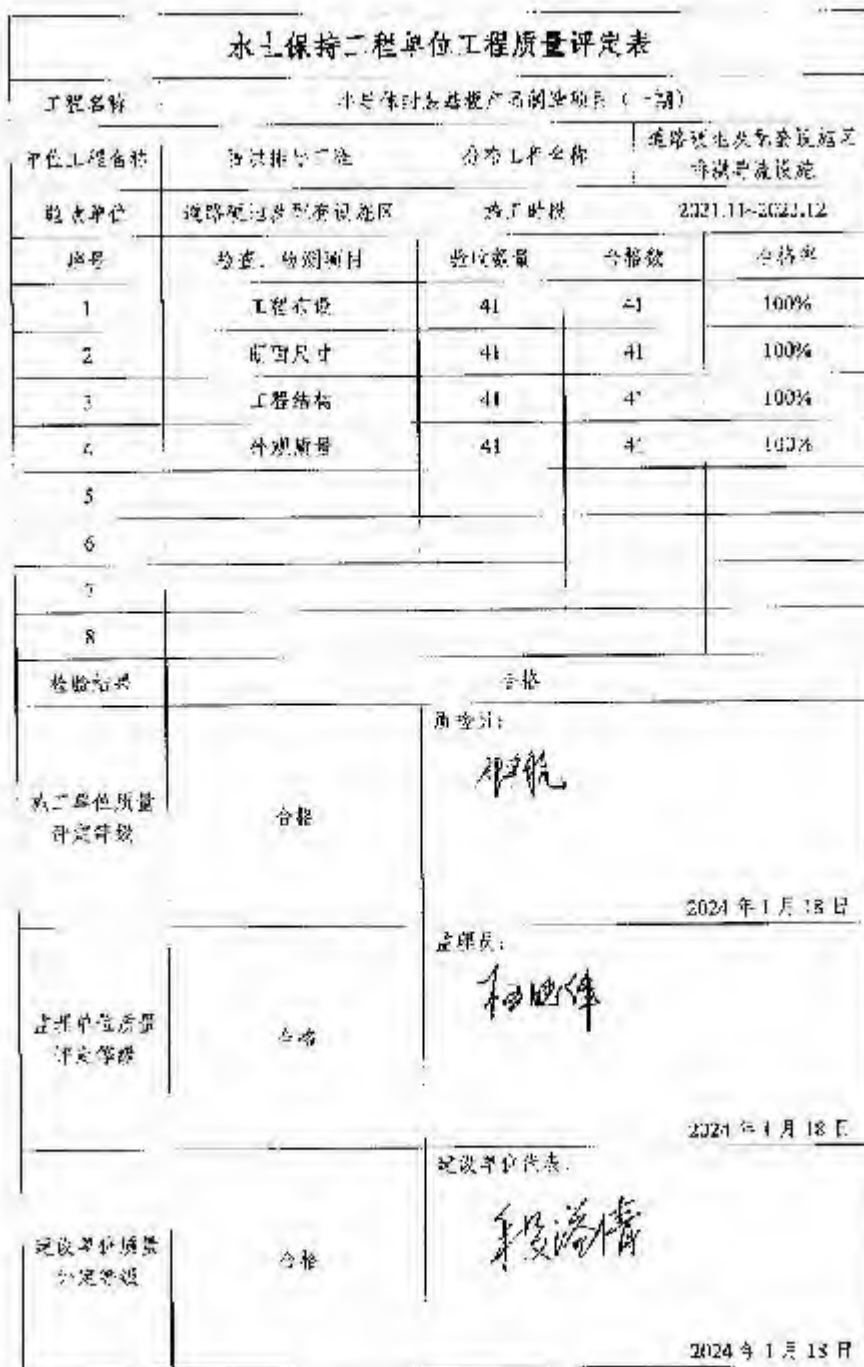 水土保持工程单位工程质量评定表
工程名称 半导体封装基板产品制造项目（一期）
单位工程名称 防洪排导工程 分部工程名称 道路硬地及配套设施区
排洪导流设施
验收单位 道路硬地及配套设施区 施工时段 2021.11-2023.12
序号 检查、检测项目 验收数量 合格数 合格率
1 工程布设 41 41 100%
2 断面尺寸 41 41 100%
3 工程结构 41 41 100%
4 外观质量 41 41 100%
5
6
7
8
检验结果 合格
施工单位质量
评定等级 合格 质检员：
2024 年 1 月 18 日
监理单位质量
评定等级 合格 监理员：
2024 年 1 月 18 日
建设单位质量
评定等级 合格 建设单位代表：
段溢情
2024 年 1 月 18 日